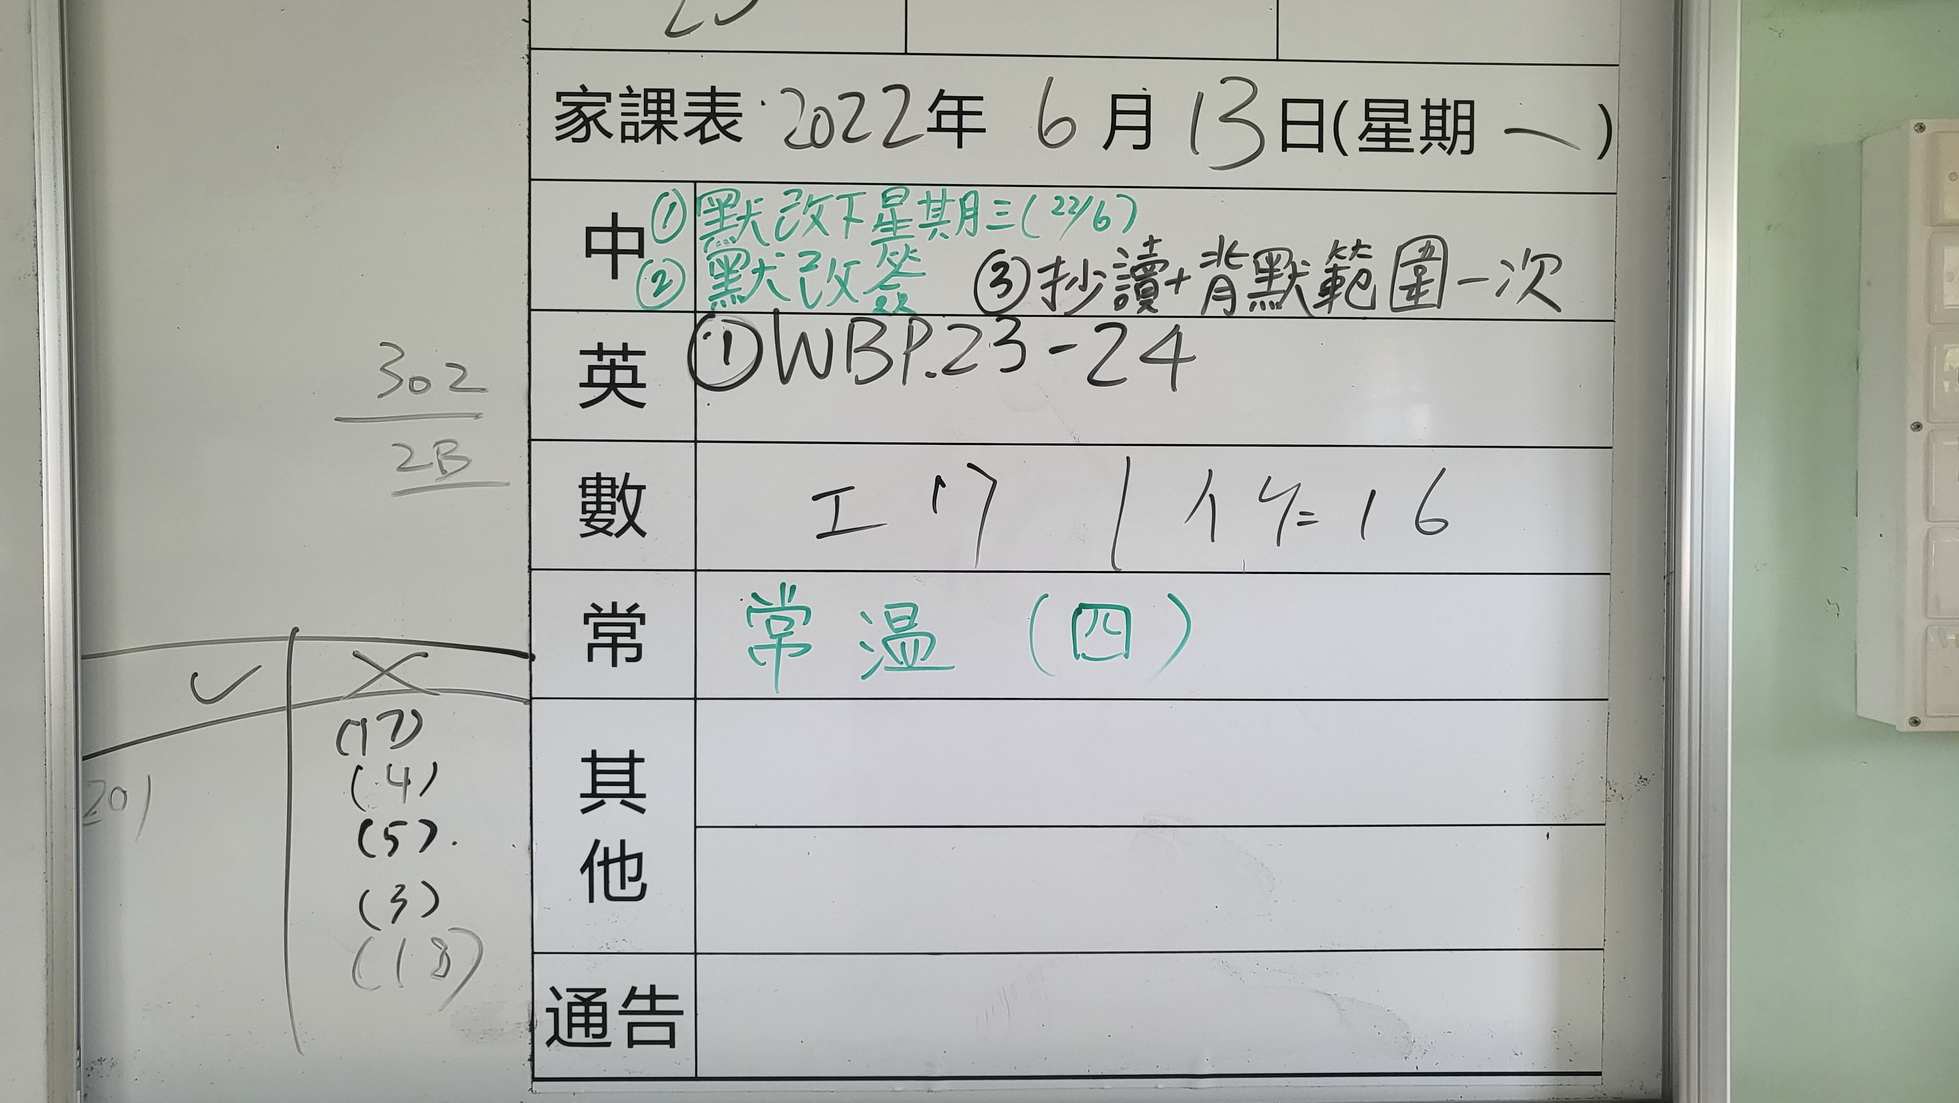 家課表 2022年 6月 13日(星期一)
中 ①默改下星期三(22/6)
②默改簽 ③抄讀+背默範圍一次
英 ①WBP.23-24
數 工17 | 作=16
常 常溫 (四)
其他
通告
302
2B
✓ ×
(17)
(4)
(5).
(3)
(18)
201